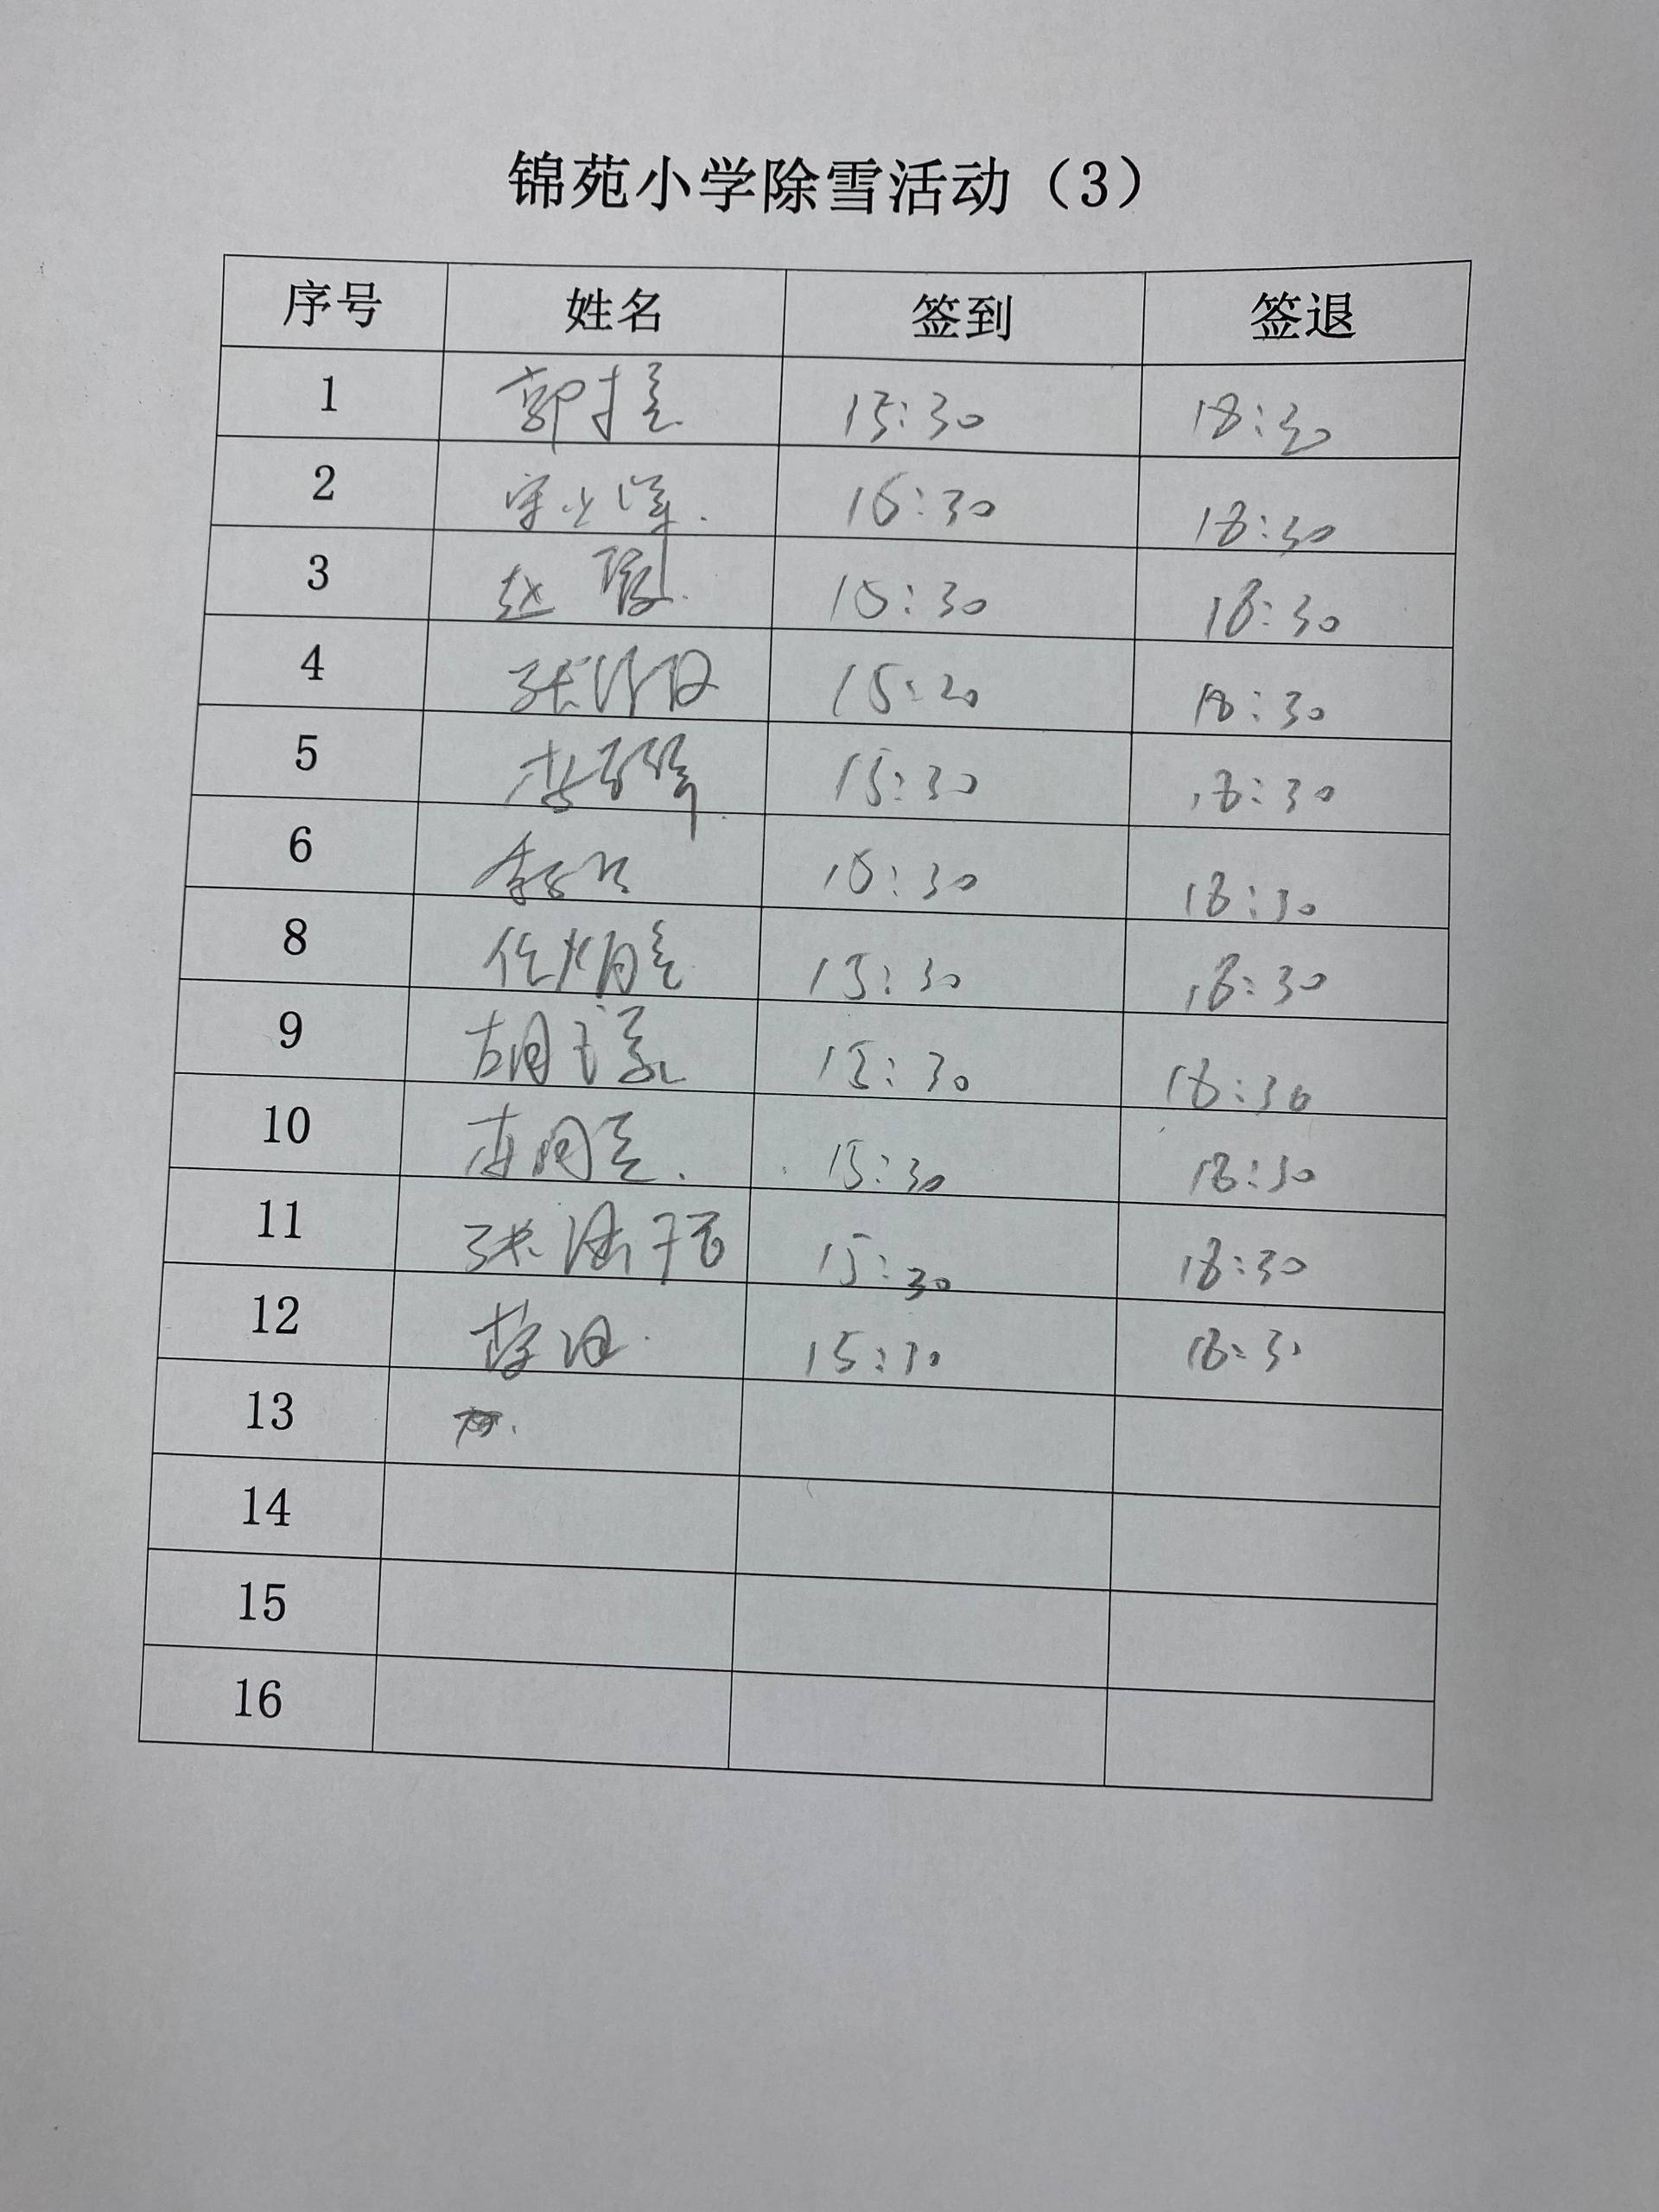 锦苑小学除雪活动（3）
序号 姓名 签到 签退
1 郭 15:30 18:30
2 16:30 18:30
3 赵 15:30 18:30
4 张 15:20 18:30
5 李 15:30 18:30
6 15:30 18:30
8 任 15:30 18:30
9 胡 15:30 18:30
10 15:30 18:30
11 张 15:30 18:30
12 15:30 18:30
13
14
15
16